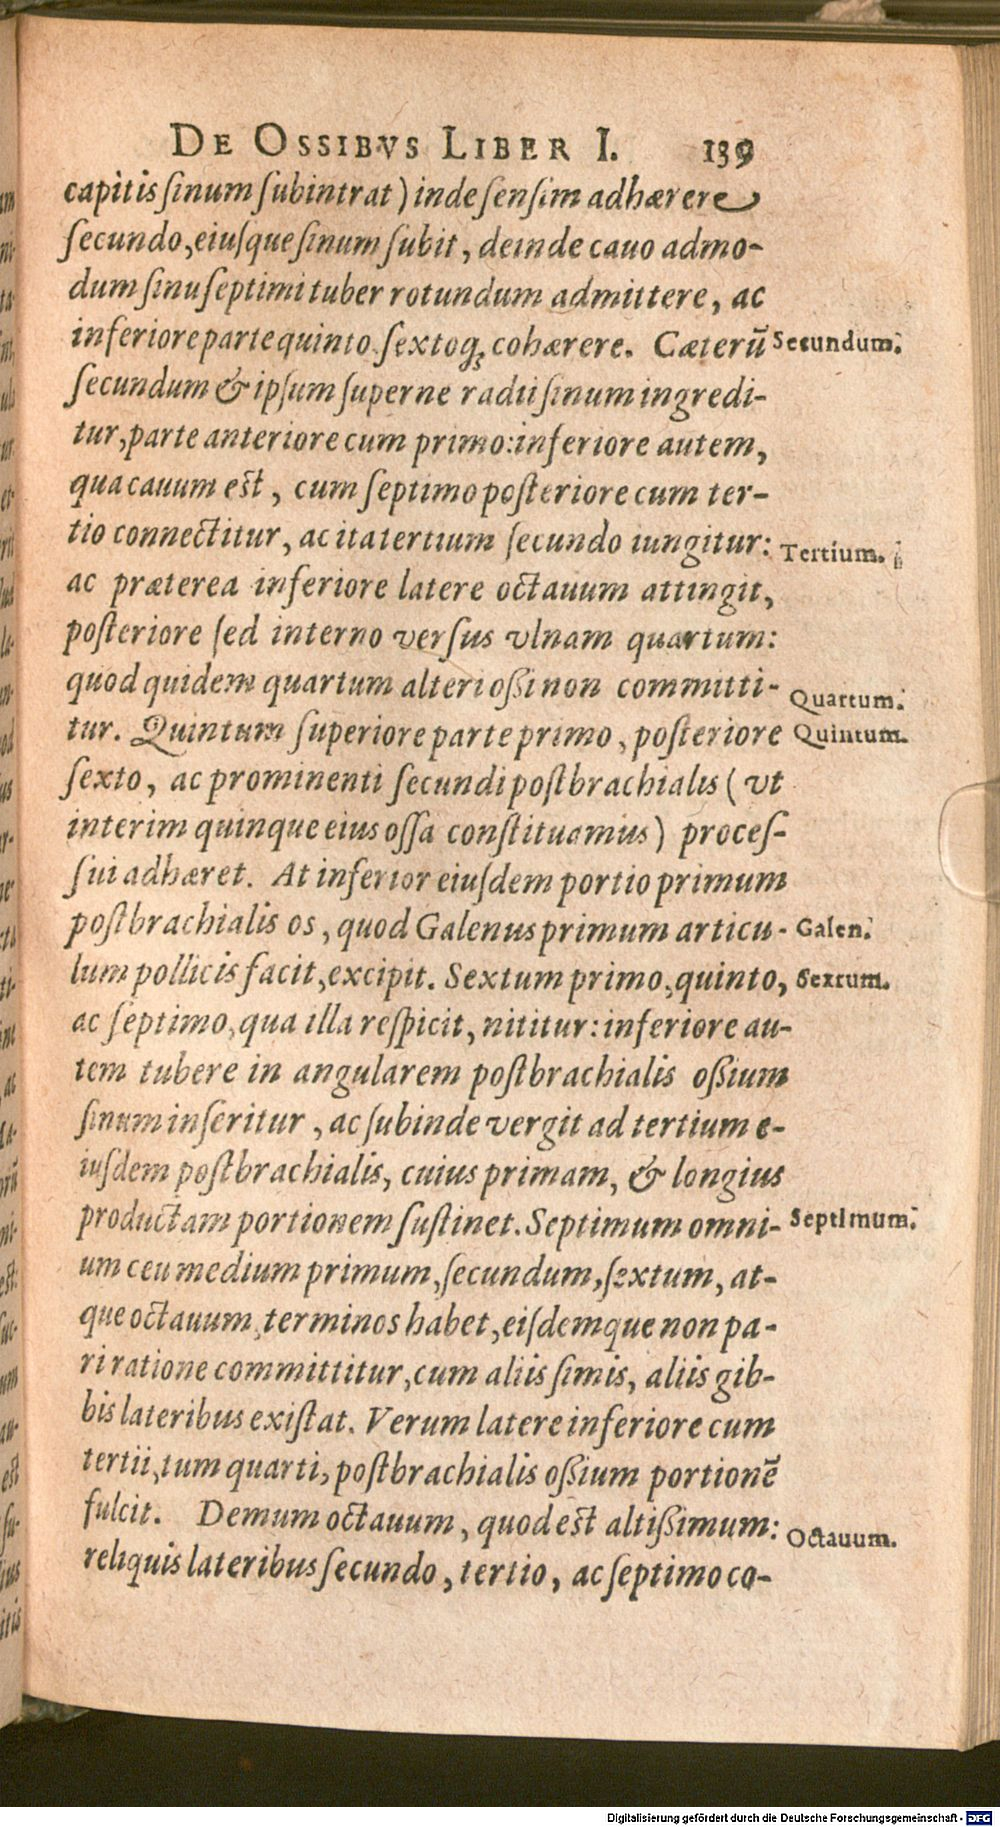 DE OSSIBVS LIBER I. 139
capitis ſinum ſubintrat) inde ſenſim adhærere
ſecundo, eiuſque ſinum ſubit, deinde cauo admo-
dum ſinu ſeptimi tuber rotundum admittere, ac
inferiore parte quinto ſextoq; cohærere. Cæterū
Secundum.
ſecundum & ipſum ſuperne radii ſinum ingredi-
tur, parte anteriore cum primo: inferiore autem,
qua cauum eſt, cum ſeptimo poſteriore cum ter-
tio connectitur, ac ita tertium ſecundo iungitur:
Tertium.
ac præterea inferiore latere octauum attingit,
poſteriore ſed interno verſus vlnam quartum:
quod quidem quartum alteri oſſi non committi-
Quartum.
tur. Quintum ſuperiore parte primo, poſteriore
Quintum.
ſexto, ac prominenti ſecundi poſtbrachialis (vt
interim quinque eius oſſa conſtituamus) proceſ-
ſui adhæret. At inferior eiuſdem portio primum
poſtbrachialis os, quod Galenus primum articu-
Galen.
lum pollicis facit, excipit. Sextum primo, quinto,
Sextum.
ac ſeptimo, qua illa reſpicit, nititur: inferiore au-
tem tubere in angularem poſtbrachialis oſſium
ſinum inſeritur, ac ſubinde vergit ad tertium e-
iuſdem poſtbrachialis, cuius primam, & longius
productam portionem ſuſtinet. Septimum omni-
Septimum.
um ceu medium primum, ſecundum, ſextum, at-
que octauum, terminos habet, eiſdemque non pa-
ri ratione committitur, cum aliis ſimis, aliis gib-
bis lateribus exiſtat. Verum latere inferiore cum
tertii, tum quarti, poſtbrachialis oſſium portionē
fulcit. Demum octauum, quod eſt altiſſimum:
Octauum.
reliquis lateribus ſecundo, tertio, ac ſeptimo co-
Digitalisierung gefördert durch die Deutsche Forschungsgemeinschaft - DFG